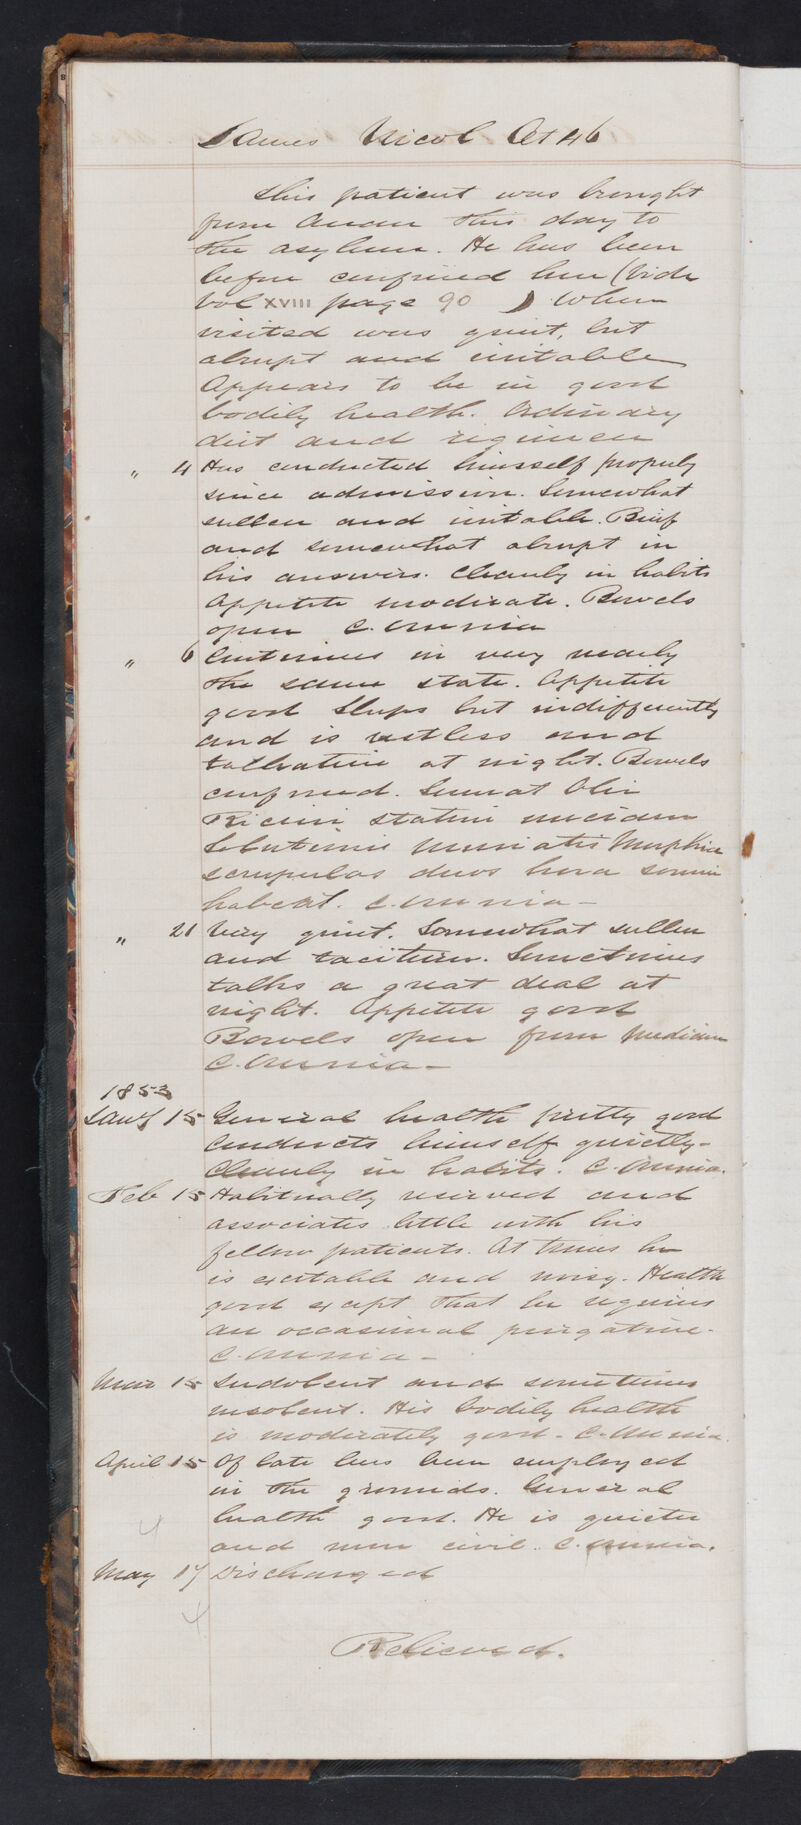 James Nicol Æt 46
This patient was brought
from Annan this day to
the asylum. He has been
before confined here (Vide
Vol XVIII page 90 ) When
visited was quiet, but
abrupt and irritable
Appears to be in good
bodily health. Ordinary
diet and regimen
" 4 Has conducted himself properly
since admission. Somewhat
sullen and irritable. Brief
and somewhat abrupt in
his answers. Cleanly in habits
Appetite moderate. Bowels
open C. Omnia
" 6 Continues in very nearly
the same state. Appetite
good Sleeps but indifferently
and is restless and
talkative at night. Bowels
confined. Sumat Olei
Ricini statim unciam
Solutionis Muriatis Morphiæ
scrupulos duos hora somni
habeat. C. Omnia -
" 21 Very quiet. Somewhat sullen
and taciturn. Sometimes
talks a great deal at
night. Appetite good
Bowels open from Medicine
C. Omnia -
1853
Jany 15 General health pretty good
Conducts himself quietly -
Cleanly in habits. C. Omnia.
Feb 15 Habitually reserved and
associates little with his
fellow patients. At times he
is excitable and noisy. Health
good except that he requires
an occasional purgative -
C. Omnia -
Mar 15 Indolent and sometimes
insolent. His bodily health
is moderately good - C. Omnia.
April 15 Of late has been employed
in the grounds. General
health good. He is quieter
and more civil. C. Omnia.
May 17 Discharged
Relieved.